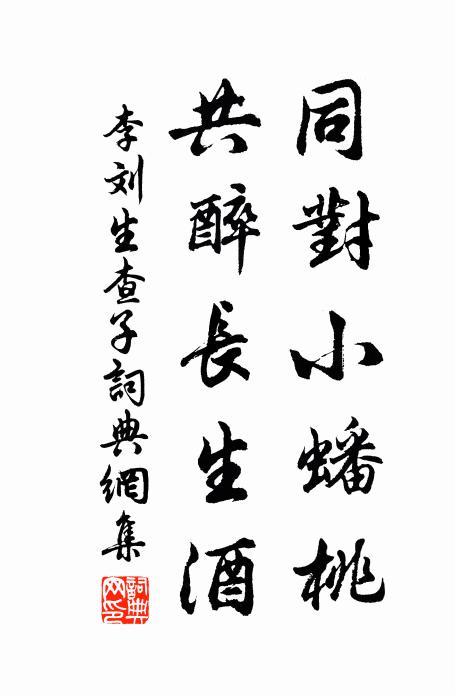 同對小蟠桃
共醉長生酒
李刘生查子詞典網集
詞典网印